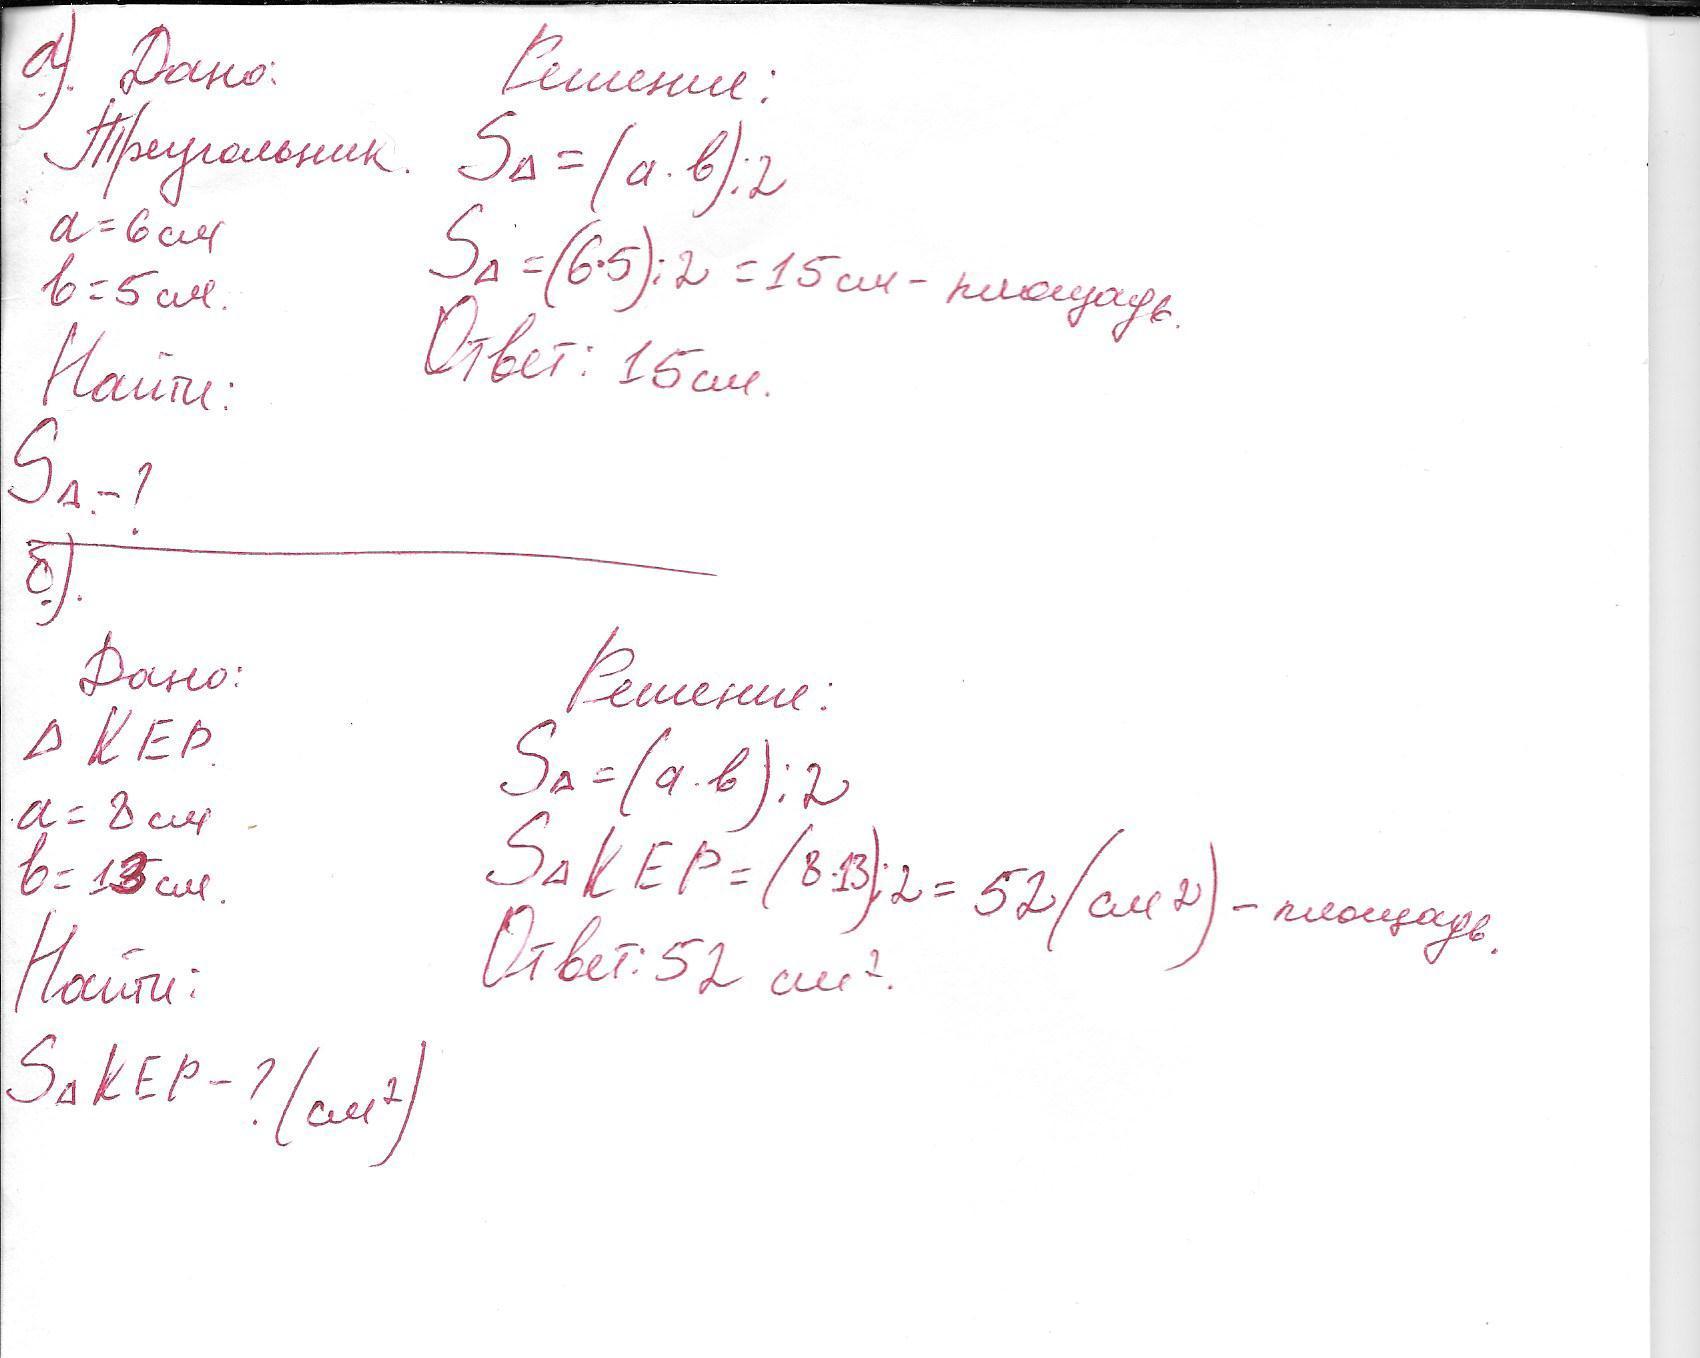 а). Дано:
Треугольник.
a = 6 см
b = 5 см.
Найти:
S∆. - ?
Решение:
S∆ = (a · b) : 2
S∆ = (6·5) : 2 = 15 см - площадь.
Ответ: 15 см.
б).
Дано:
∆ KEP.
a = 8 см
b = 13 см.
Найти:
S∆ KEP - ? (см²)
Решение:
S∆ = (a · b) : 2
S∆ KEP = (8·13) : 2 = 52 (см²) - площадь.
Ответ: 52 см².